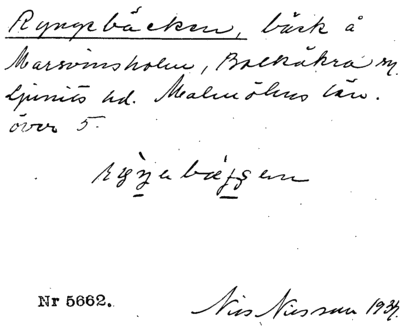 Ryngebäcken, bäck å
Marsvinsholm, Balkåkra sn,
Ljunits hd. Malmöhus län.
över 5.
Nr 5662.
Nils Nilsson 193